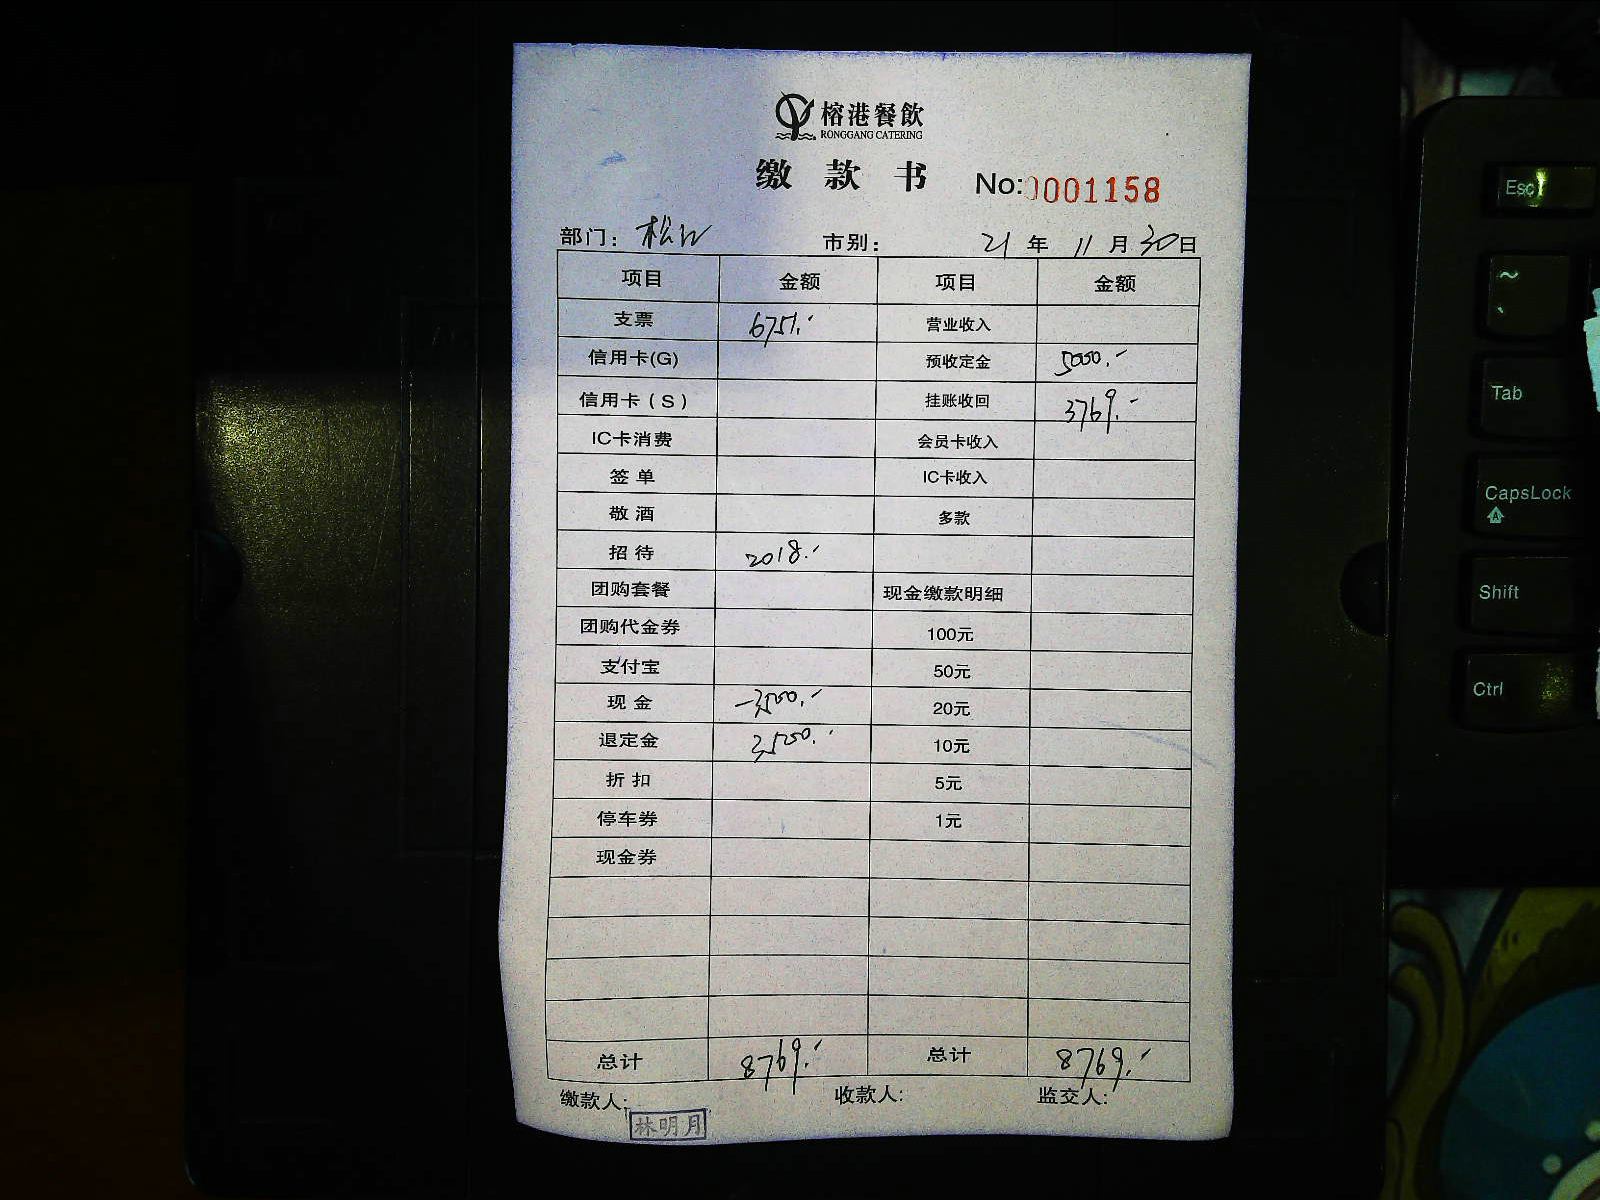 榕港餐飲
RONGGANG CATERING
缴 款 书 No:0001158
部门: 松江 市别: 21 年 11 月 30 日
项目 金额 项目 金额
支票 6751.- 营业收入
信用卡(G) 预收定金 5000.-
信用卡(S) 挂账收回 3769.-
IC卡消费 会员卡收入
签 单 IC卡收入
敬 酒 多款
招 待 2018.-
团购套餐 现金缴款明细
团购代金券 100元
支付宝 50元
现 金 -3500.- 20元
退定金 3500.- 10元
折 扣 5元
停车券 1元
现金券
总计 8769.- 总计 8769.-
缴款人: 林明月 收款人: 监交人:
Esc
~
、
Tab
CapsLock
A
Shift
Ctrl